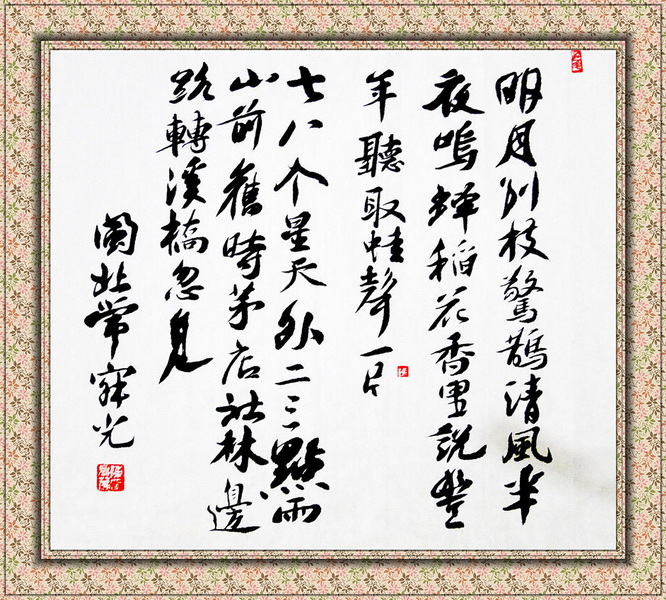 明月别枝驚鵲清風半
夜鳴蟬稻花香里說豐
年聽取蛙聲一片
七八个星天外二三點雨
山前舊時茅店社林邊
路轉溪橋忽見
閩北常寐光